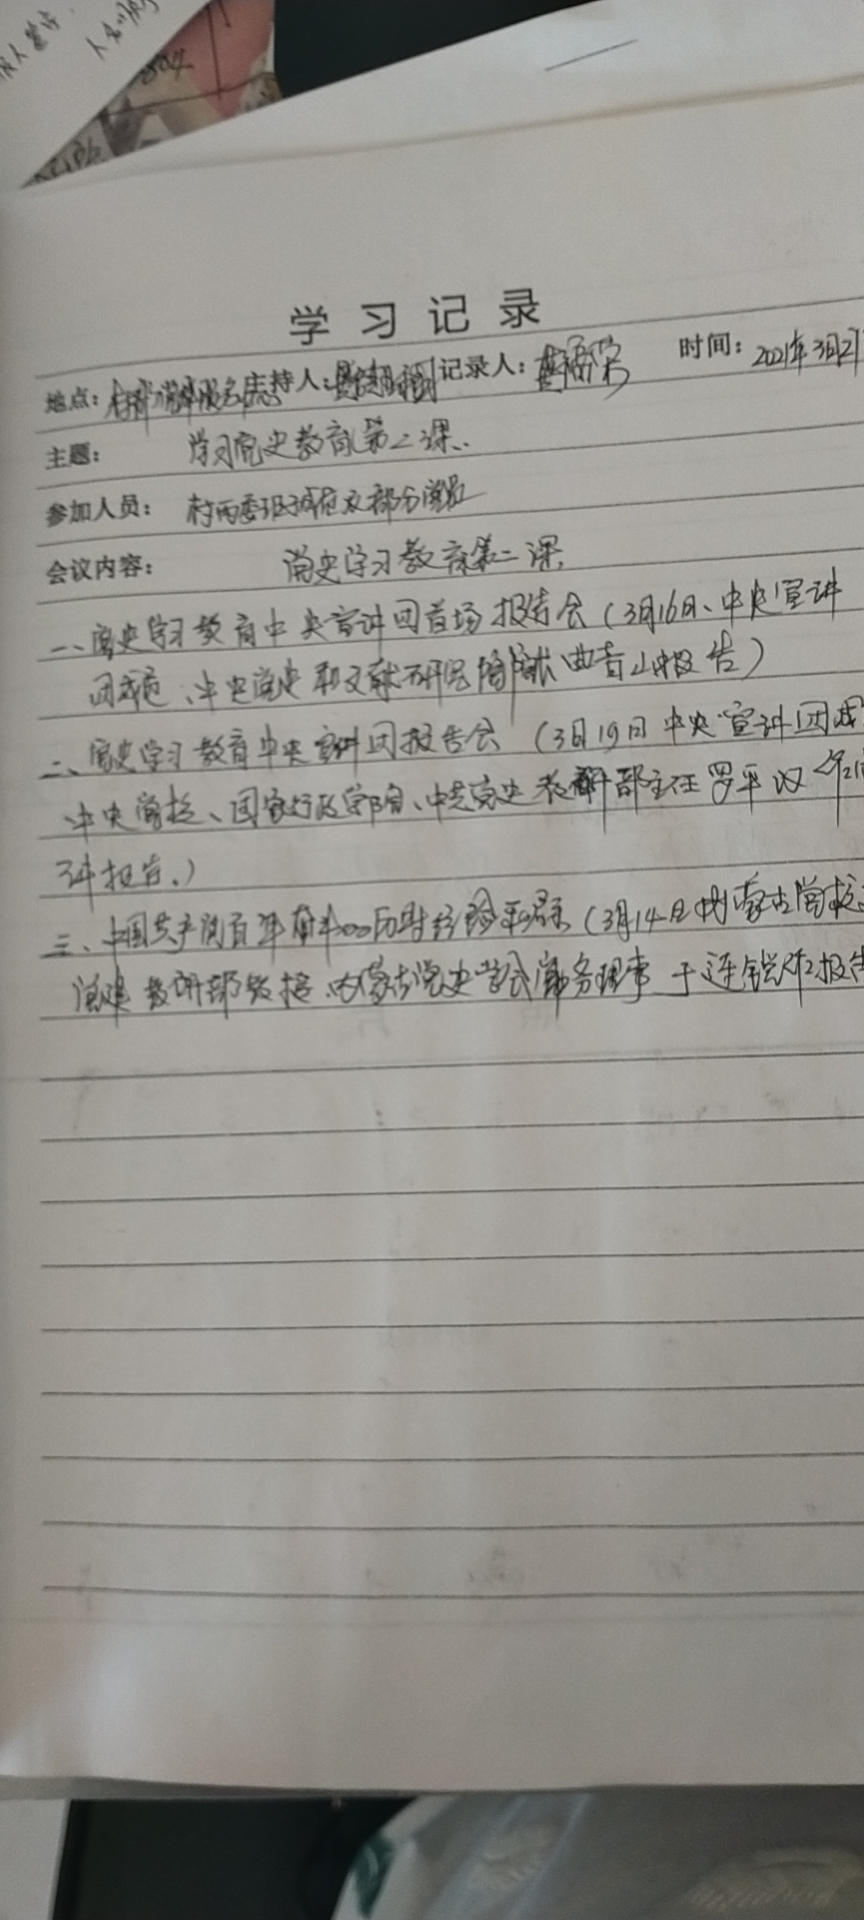 学习记录
地点: 主持人: 记录人: 时间: 2021年3月21
主题: 学习党史教育第二课.
参加人员: 村两委班子成员及部分党员
会议内容: 党史学习教育第二课.
一、党史学习教育中央宣讲团首场报告会(3月16日、中央宣讲
团成员、中央党史和文献研究院院长曲青山报告)
二、党史学习教育中央宣讲团报告会 (3月19日 中央宣讲团成
中央党校、国家行政学院、中共党史教研部主任 罗平汉
讲报告.)
三、中国共产党百年奋斗的历史经验和启示 (3月14日内蒙古党校
党建教研部教授、内蒙古党史学会常务理事 于连锐作报告